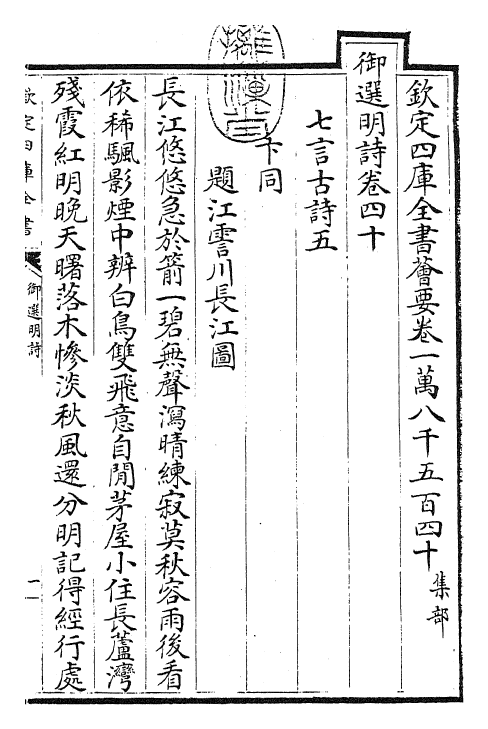 欽定四庫全書薈要卷一萬八千五百四十 集部
御選明詩卷四十
七言古詩五
卞同
題江雲川長江圖
長江悠悠急於箭一碧無聲瀉晴練寂莫秋容雨後看
依稀颿影煙中辨白鳥雙飛意自閒茅屋小住長蘆灣
殘霞紅明晚天曙落木慘淡秋風還分明記得經行處
欽定四庫全書
御選明詩
一